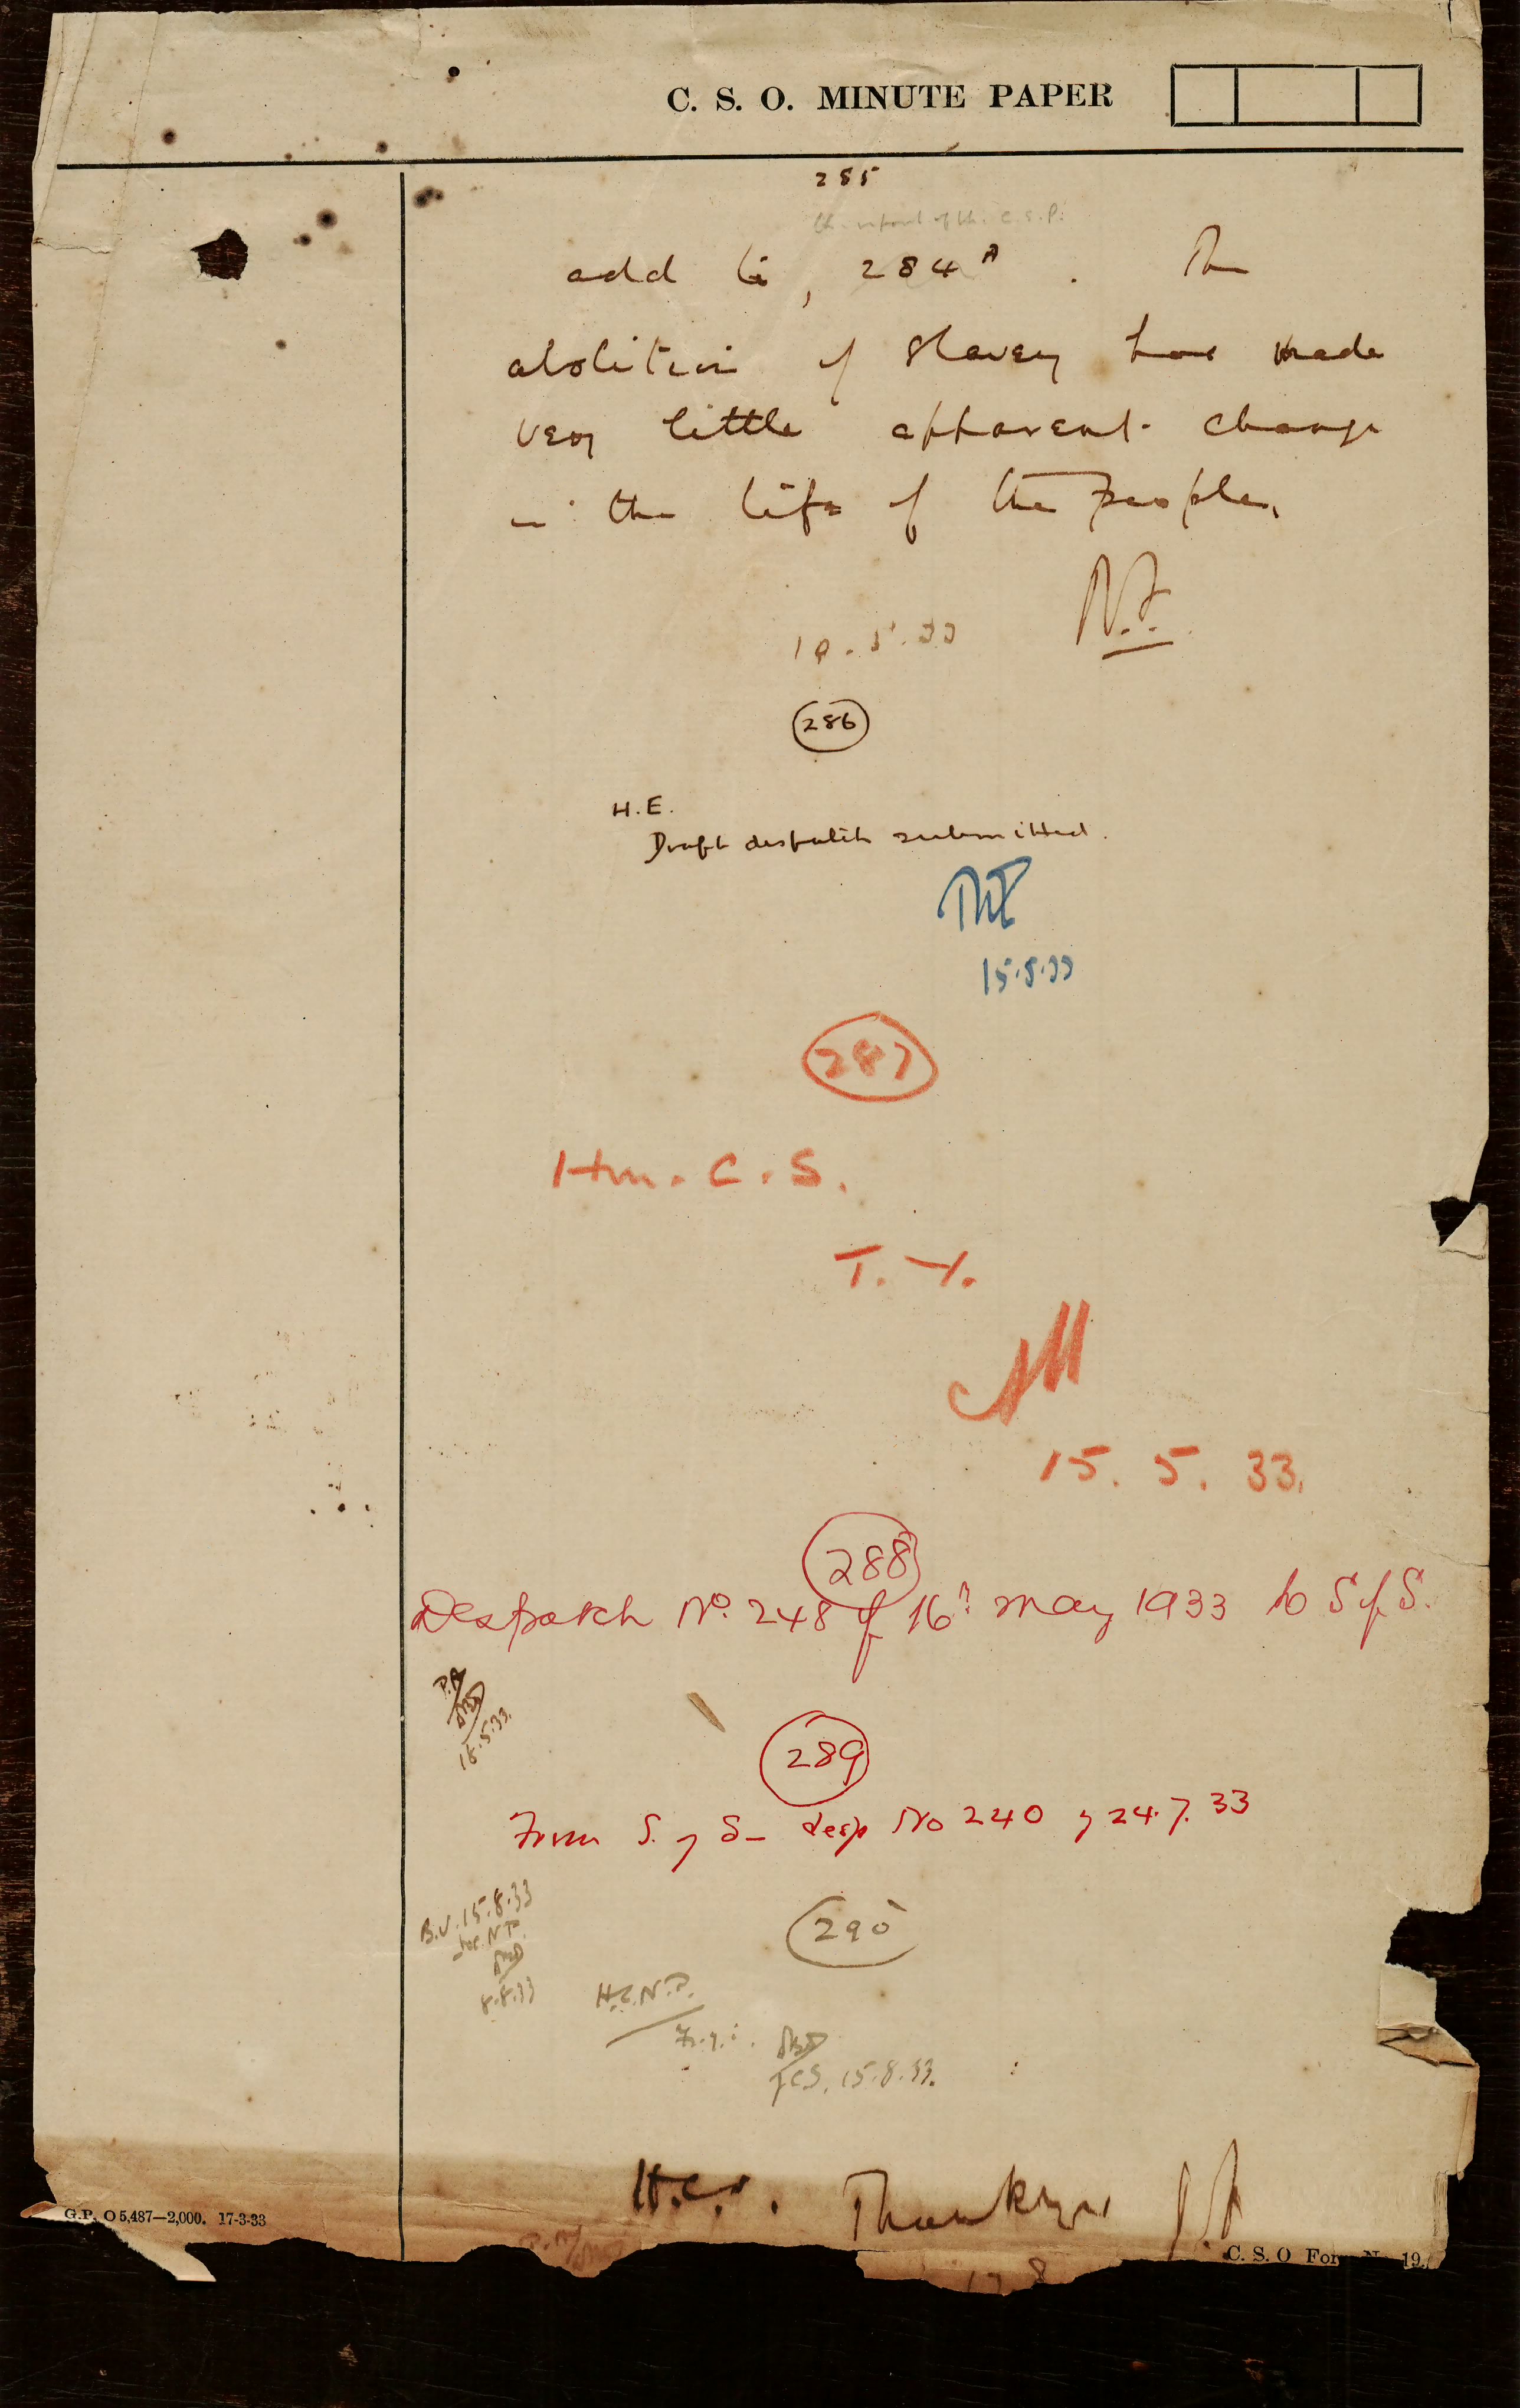 C. S. O. MINUTE PAPER
285
the report of the C.S.P.
add to, 284A. The
abolition of slavery has made
very little apparent change
in the life of the people.
N.F.
10.5.33
286
H.E.
Draft despatch submitted.
15.5.33
287
Hon. C. S.
T. Y.
15. 5. 33.
288
Despatch No. 248 of 16th May 1933 to S of S.
P.A
16.5.33.
289
From S. of S— desp No 240 of 24.7.33
B.U. 15.8.33
for N.P.
8.8.33
290
H.C.N.P.
F.y.i.
f CS. 15.8.33.
H.C.S. Thank you
17 8
G.P. O 5,487—2,000. 17-3-33
C. S. O For N 19.